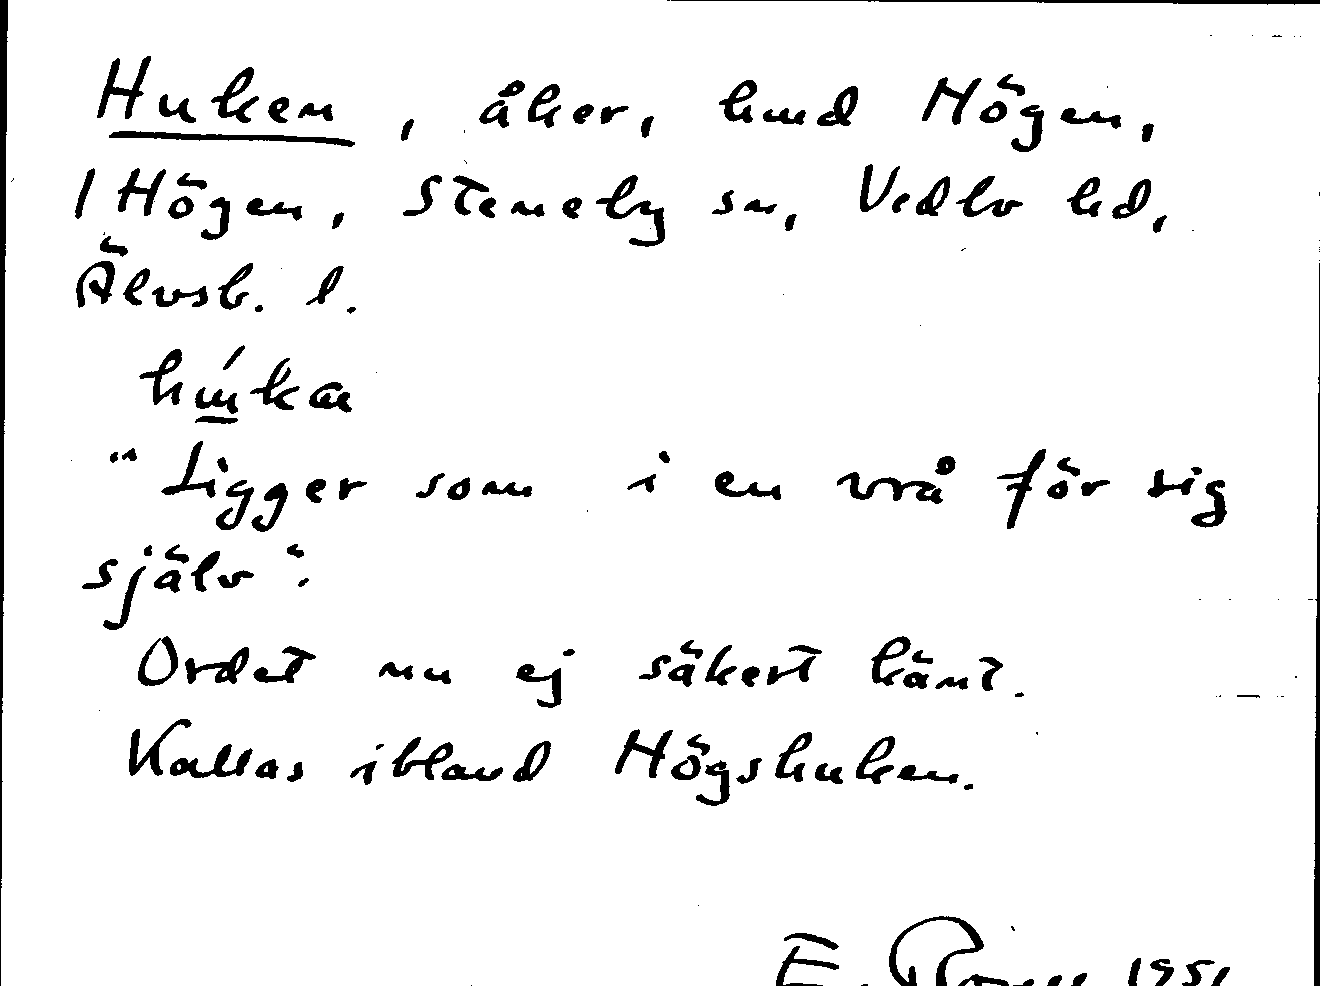 Huken, åker, hmd Högen,
1 Högen, Steneby sn, Vedbo hd,
Älvsb. l.
"Ligger som i en vrå för sig
själv".
Ordet nu ej säkert känt.
Kallas ibland Högshuken.
E. 1951